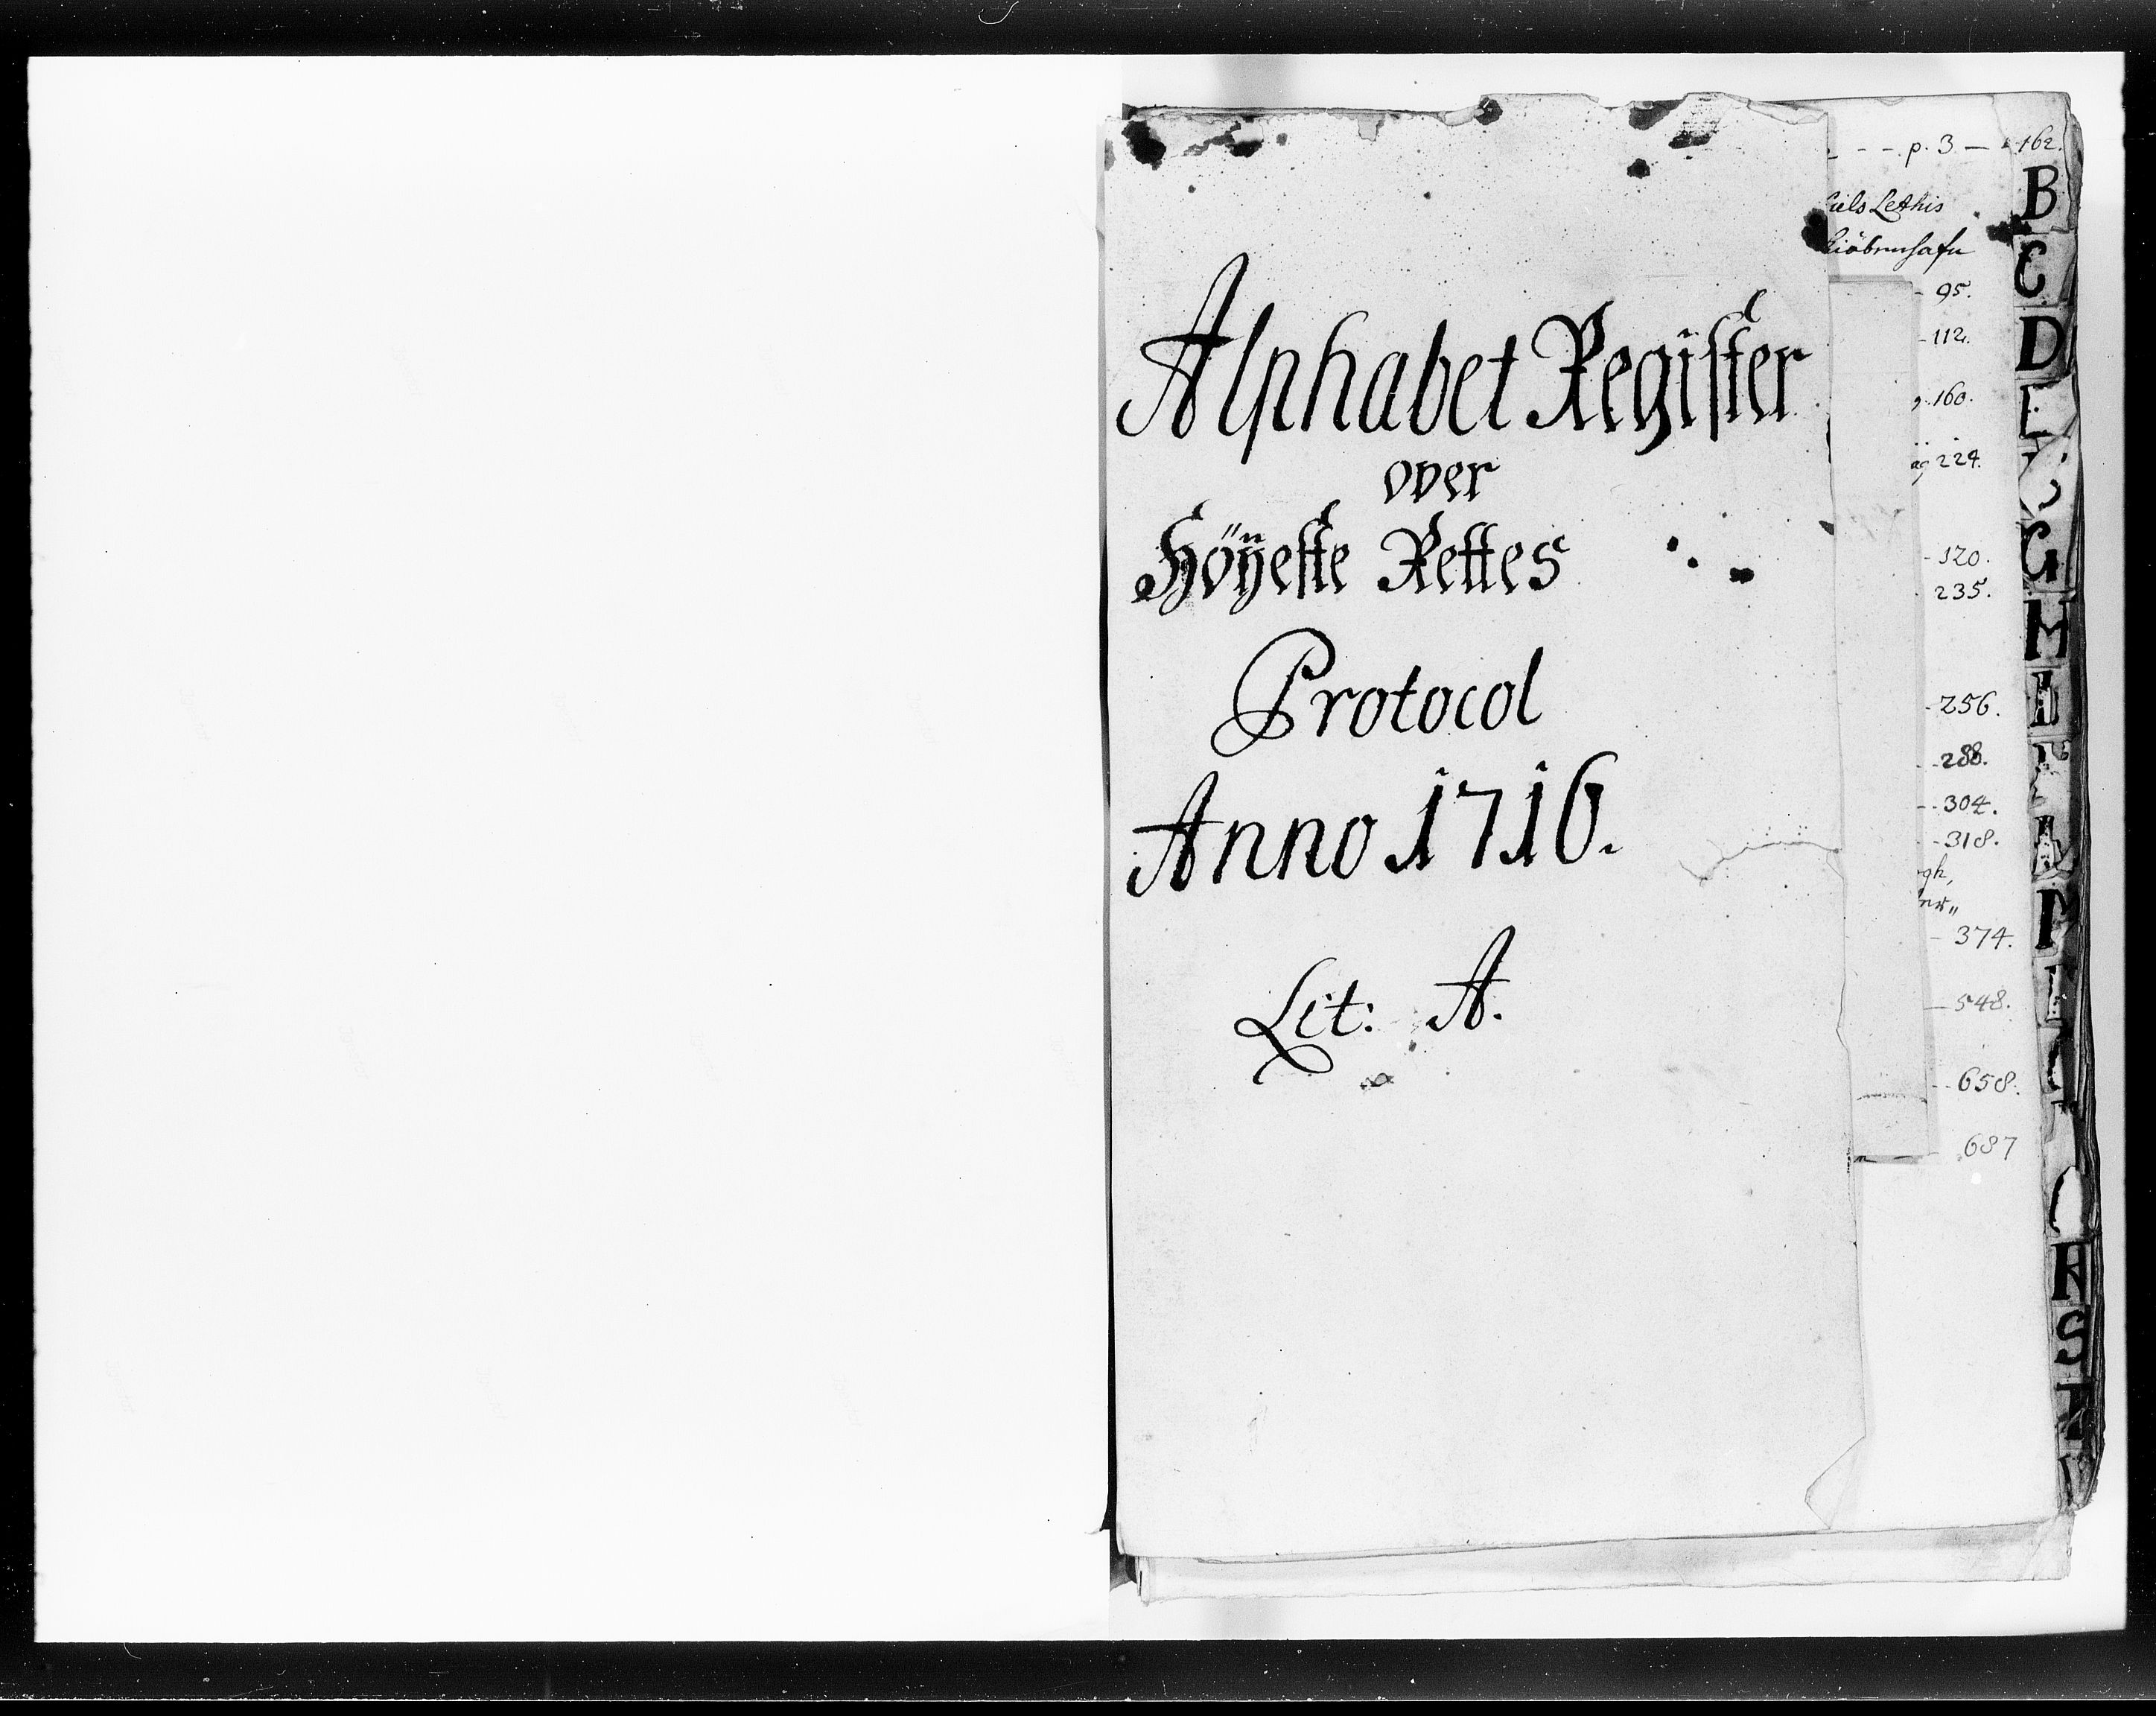 Alphabet Register
over
Höÿeste Rettes
Protocol
Anno 1716.
Lit: A.
p. 3 — 162.
Lethis
Kiöbenhafn
95.
112.
160.
224.
120.
235.
256.
288.
304.
318.
374.
548.
658.
687
B
C
D
E
G
H
I
P
R
S